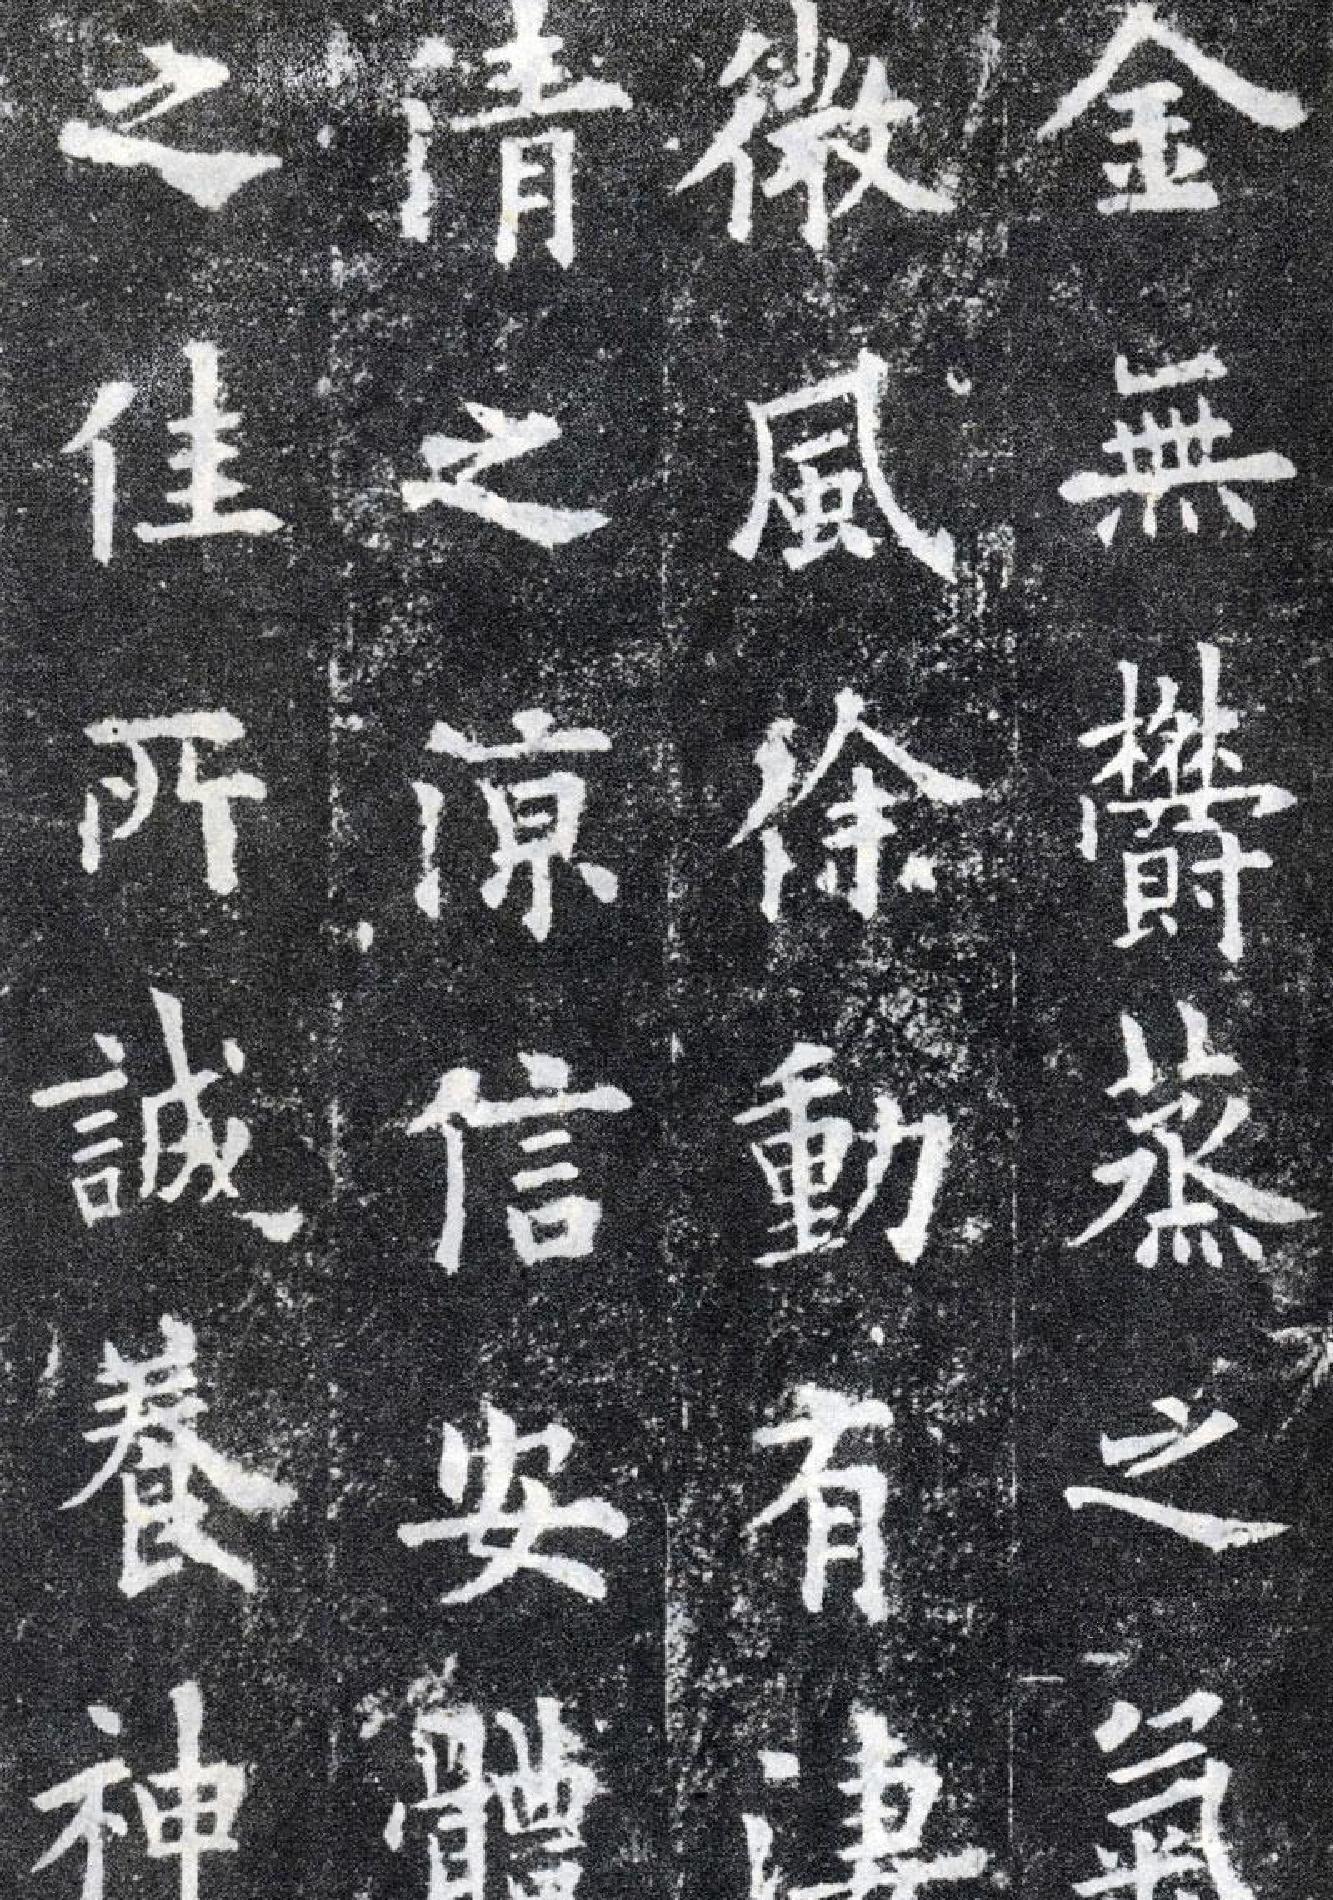 金無鬱蒸之氣
微風徐動有凄
清之涼信安體
之佳所誠養神